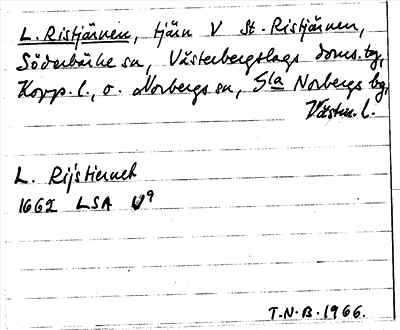 L. Ristjärnen, tjärn V St. Ristjärnen,
Söderbärke sn, Västerbergslags doms.tg,
Kopp. l., o. Norbergs sn, Gla Norbergs bg,
Västm. l.
L. Rijstiernet
1662 LSA U9
T.N.B. 1966.